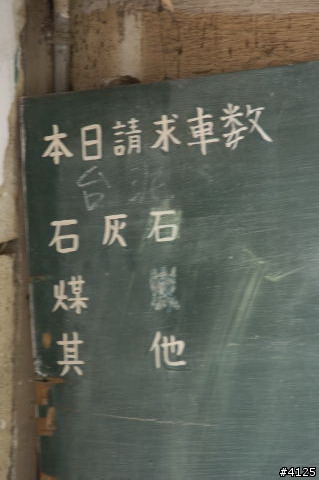 本日請求車数
台泥
石灰石
煤炭
其他
#4125